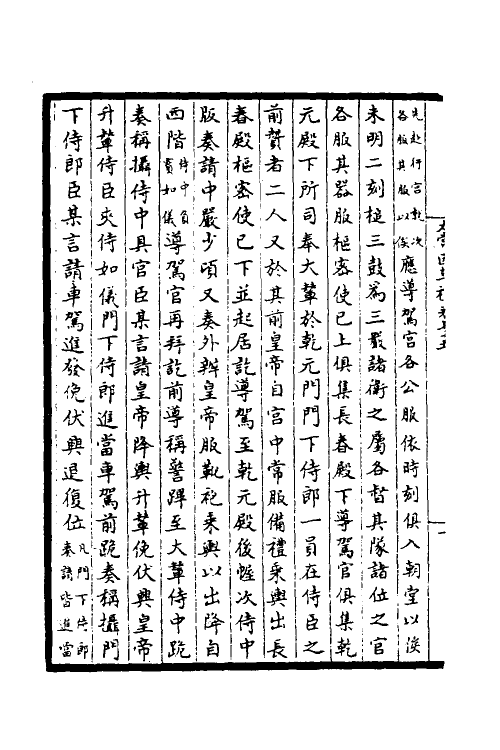 先赴行宮敕次
各服其服以俟應導駕官各公服依時刻俱入朝堂以俟
未明二刻槌三鼓為三嚴諸衛之屬各督其隊諸位之官
各服其器服樞密使已上俱集長春殿下導駕官俱集乾
元殿下所司奉大輦於乾元門門下侍郎一員在侍臣之
前贊者二人又於其前皇帝自宮中常服備禮乘輿出長
春殿樞密使已下並起居訖導駕至乾元殿後幄次侍中
版奏請中嚴少頃又奏外辦皇帝服靴袍乘輿以出降自
西階侍中負
寶如儀導駕官再拜訖前導稱警蹕至大輦侍中跪
奏稱攝侍中具官臣某言請皇帝降輿升輦俛伏興皇帝
升輦侍臣夾侍如儀門下侍郎進當車駕前跪奏稱攝門
下侍郎臣某言請車駕進發俛伏興退復位凡門下侍郎
奏請皆進當